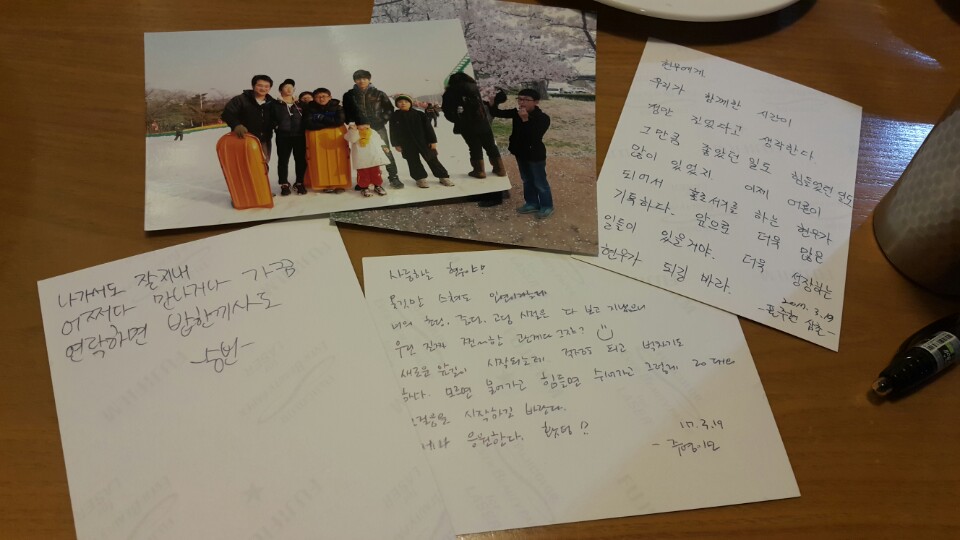 현우에게.
우리가 함께한 시간이
정말 길었다고 생각한다
그만큼 좋았던 일도 힘들었던 일도
많이 있었지 이제 어른이
되어서 홀로서기를 하는 현우가
기특하다. 앞으로 더욱 많은
일들이 있을거야. 더욱 성장하는
현우가 되길 바라.
2017. 3. 19
나가서도 잘지내
어쩌다 만나거나 가끔
연락하면 밥한끼사도
사랑하는 현우야!
옷깃만 스쳐도 인연이라는데
너의 초딩, 중딩, 고딩 시절을 다 보고 지냈으니
우린 진짜 찐~한 관계다 그치?
새로운 앞길이 시작되는데 걱정도 되고 벅차기도
하다. 모르면 물어가고 힘들면 쉬어가고 그렇게 20대의
시작하길 바란다.
응원한다. 홧팅!!
17. 3. 19
- 주영이모